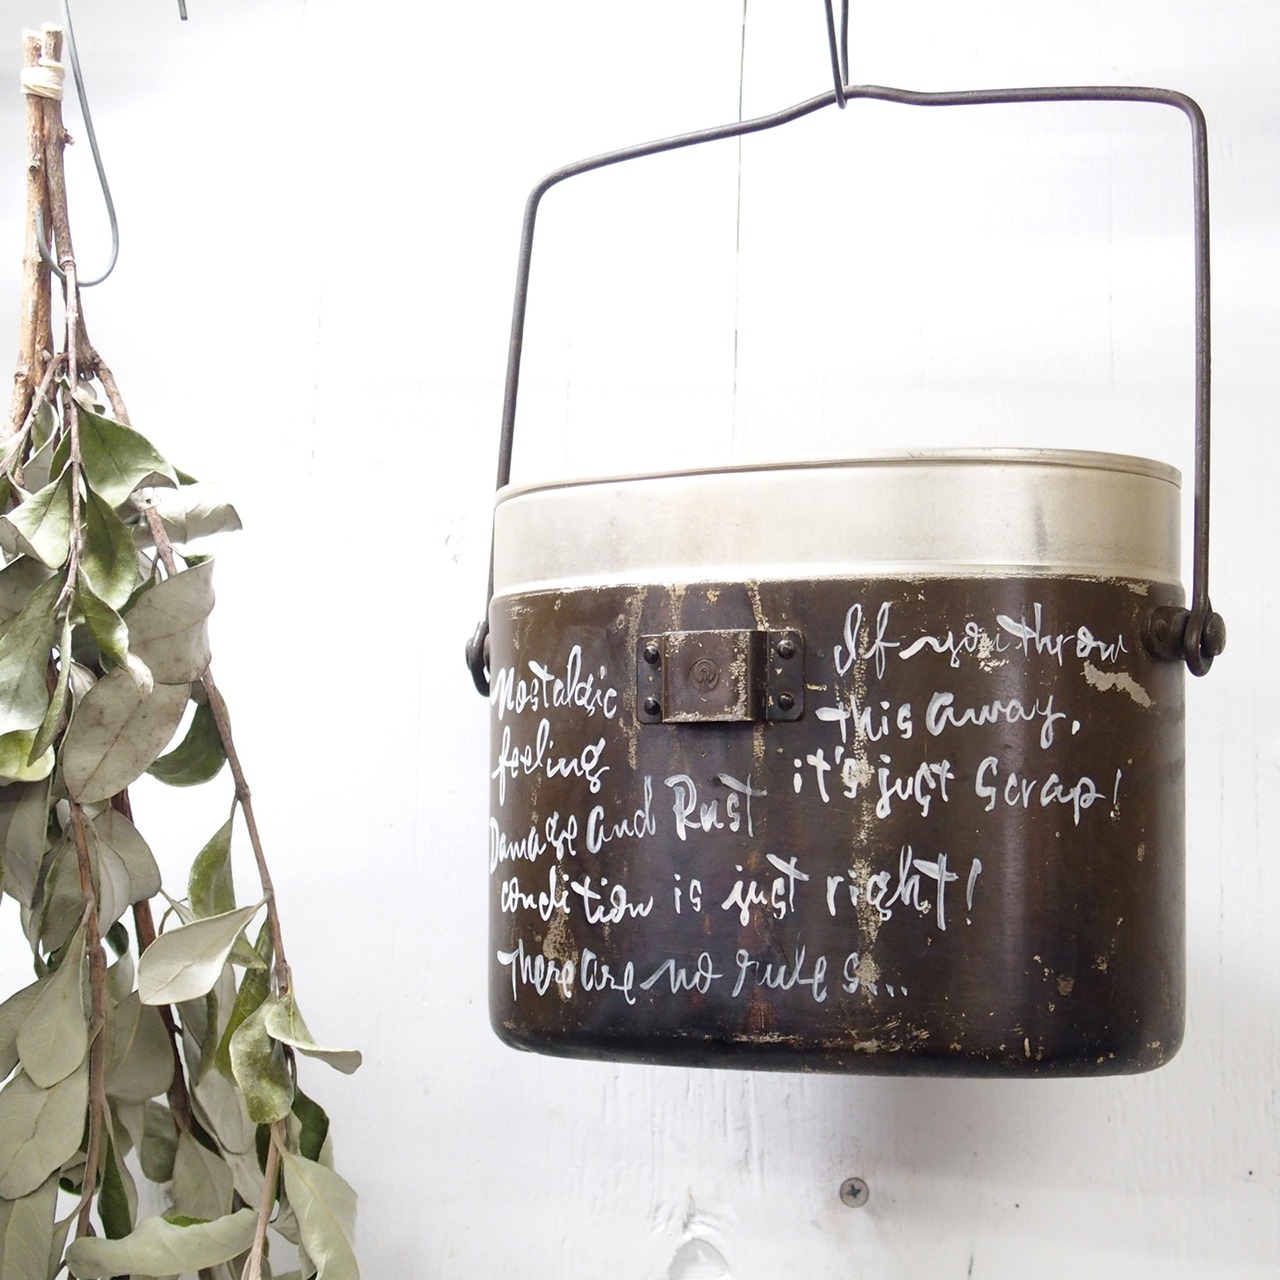 Nostalgic
feeling
Damage and Rust
condition is just right!
There are no rules...
If you throw
this away,
it's just Scrap!